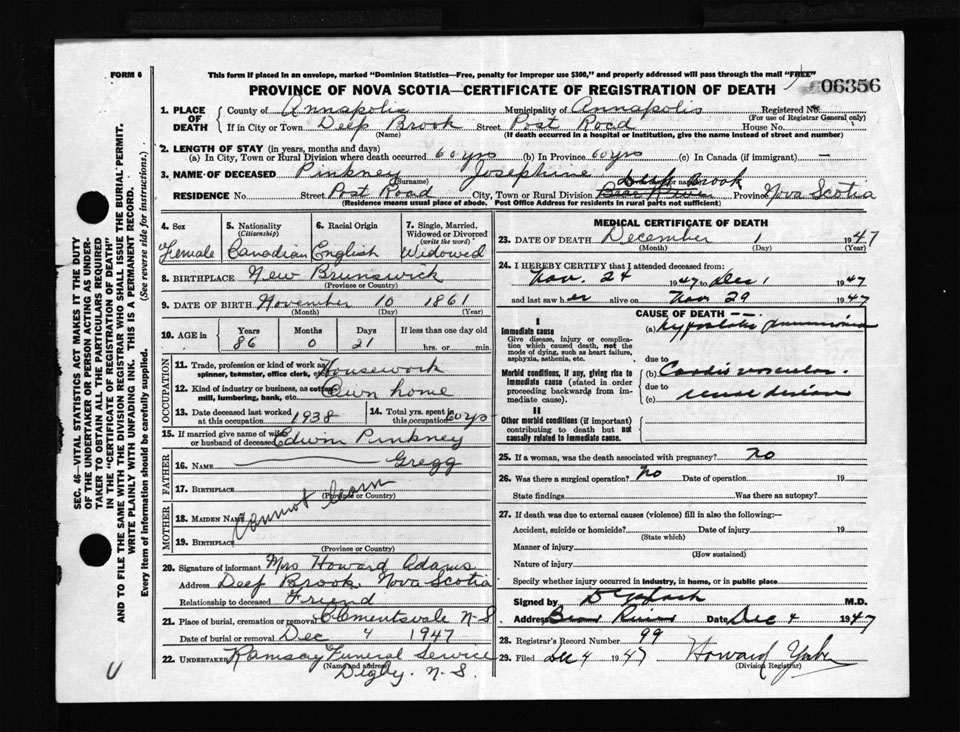 FORM 6
This form if placed in an envelope, marked "Dominion Statistics—Free, penalty for improper use $300," and properly addressed will pass through the mail "FREE"
PROVINCE OF NOVA SCOTIA—CERTIFICATE OF REGISTRATION OF DEATH
06356
1. PLACE OF DEATH
County of Annapolis Municipality of Annapolis Registered No.
(For use of Registrar General only)
If in City or Town Deep Brook Street Post Road House No.
(Name) (If death occurred in a hospital or institution, give the name instead of street and number)
2. LENGTH OF STAY (in years, months and days)
(a) In City, Town or Rural Division where death occurred 60 yrs (b) In Province 60 yrs (c) In Canada (if immigrant) —
3. NAME OF DECEASED Pinkney Josephine
(Surname)
Deep Brook
RESIDENCE No. Street Post Road City, Town or Rural Division Province Nova Scotia
(Residence means usual place of abode. Post Office Address for residents in rural parts not sufficient)
4. Sex Female
5. Nationality (Citizenship) Canadian
6. Racial Origin English
7. Single, Married, Widowed or Divorced (write the word) Widowed
8. BIRTHPLACE New Brunswick
(Province or Country)
9. DATE OF BIRTH November 10 1861
(Month) (Day) (Year)
10. AGE in Years 86 Months 0 Days 21 If less than one day old hrs. or min.
OCCUPATION
11. Trade, profession or kind of work as spinner, teamster, office clerk, etc. Housework
12. Kind of industry or business, as cotton mill, lumbering, bank, etc. Own home
13. Date deceased last worked at this occupation 1938
14. Total yrs. spent in this occupation 60 yrs
15. If married give name of wife or husband of deceased Edwin Pinkney
FATHER
16. NAME Gregg
17. BIRTHPLACE
(Province or Country)
cannot learn
MOTHER
18. MAIDEN NAME
19. BIRTHPLACE
(Province or Country)
20. Signature of informant Mrs Howard Adams
Address Deep Brook, Nova Scotia
Relationship to deceased Friend
21. Place of burial, cremation or removal Clementsvale N S
Date of burial or removal Dec 4 1947
22. UNDERTAKER Ramsay Funeral Service
(Name and address)
Digby. N. S.
MEDICAL CERTIFICATE OF DEATH
23. DATE OF DEATH December 1 1947
(Month) (Day) (Year)
24. I HEREBY CERTIFY that I attended deceased from:
Nov. 24 1947 to Dec 1 1947
and last saw her alive on Nov. 29 1947
CAUSE OF DEATH
I
Immediate cause
Give disease, injury or complication which caused death, not the mode of dying, such as heart failure, asphyxia, asthenia, etc.
(a) Hypostatic pneumonia
due to
Morbid conditions, if any, giving rise to immediate cause (stated in order proceeding backwards from immediate cause).
(b) Cardio vascular
due to
(c) renal disease
II
Other morbid conditions (if important) contributing to death but not causally related to immediate cause.
25. If a woman, was the death associated with pregnancy? no
26. Was there a surgical operation? No Date of operation 19
State findings Was there an autopsy?
27. If death was due to external causes (violence) fill in also the following:—
Accident, suicide or homicide? Date of injury 19
(State which)
Manner of injury
(How sustained)
Nature of injury
Specify whether injury occurred in industry, in home, or in public place
Signed by M.D.
Address Bear River Date Dec 4 1947
28. Registrar's Record Number 99
29. Filed Dec 4 1947 Howard
(Division Registrar)
SEC. 46—VITAL STATISTICS ACT MAKES IT THE DUTY
OF THE UNDERTAKER OR PERSON ACTING AS UNDER-
TAKER TO OBTAIN ALL THE PARTICULARS REQUIRED
IN THE "CERTIFICATE OF REGISTRATION OF DEATH"
AND TO FILE THE SAME WITH THE DIVISION REGISTRAR WHO SHALL ISSUE THE BURIAL PERMIT.
WRITE PLAINLY WITH UNFADING INK. THIS IS A PERMANENT RECORD.
Every item of information should be carefully supplied. (See reverse side for instructions.)